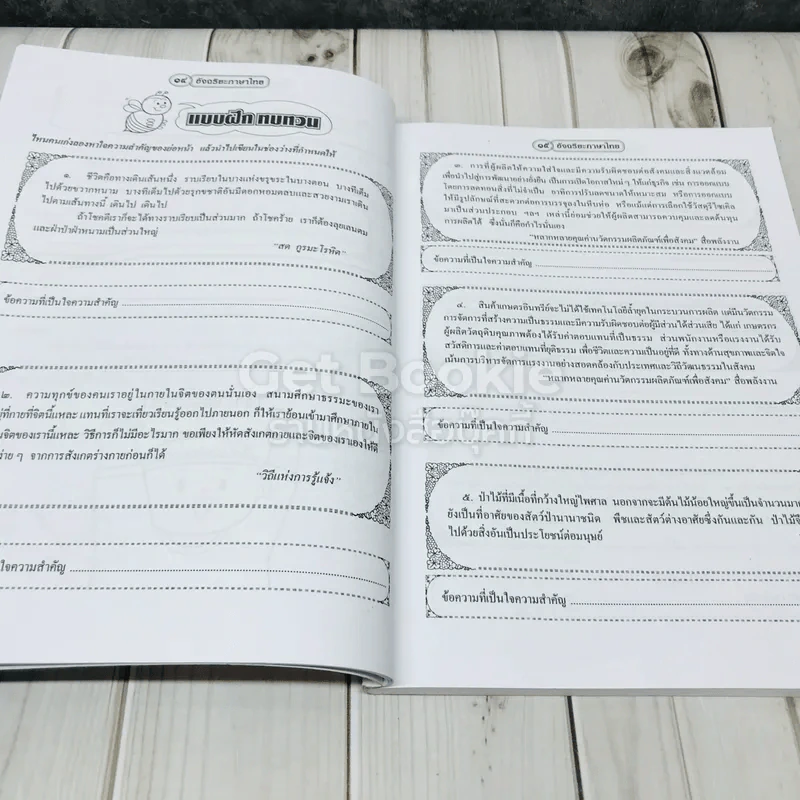 ๑๔ อัจฉริยะภาษาไทย
แบบฝึก ทบทวน
ไหนคนเก่งลองหาใจความสำคัญของย่อหน้า แล้วนำไปเขียนในช่องว่างที่กำหนดให้
๑. ชีวิตคือทางเดินเส้นหนึ่ง ราบเรียบในบางแห่งขรุขระในบางตอน บางทีเต็ม
ไปด้วยขวากหนาม บางทีเต็มไปด้วยรุกขชาติอันมีดอกหอมตลบและสวยงามเราเดิน
ไปตามเส้นทางนี้ เดินไป เดินไป
ถ้าโชคดีเราก็จะได้ทางราบเรียบเป็นส่วนมาก ถ้าโชคร้าย เราก็ต้องลุยเลนตม
และฝ่าป่าฝ่าหนามเป็นส่วนใหญ่
"สด กูรมะโรหิต"
ข้อความที่เป็นใจความสำคัญ
๒. ความทุกข์ของคนเราอยู่ในกายในจิตของตนนั่นเอง สนามศึกษาธรรมะของเรา
ที่กายที่จิตนี้แหละ แทนที่เราจะเที่ยวเรียนรู้ออกไปภายนอก ก็ให้เราย้อนเข้ามาศึกษาภายใน
จิตของเรานี้แหละ วิธีการก็ไม่มีอะไรมาก ขอเพียงให้หัดสังเกตกายและจิตของเราเองให้ดี
ง่าย ๆ จากการสังเกตร่างกายก่อนก็ได้
"วิถีแห่งการรู้แจ้ง"
ใจความสำคัญ
๑๕ อัจฉริยะภาษาไทย
๓. การที่ผู้ผลิตให้ความใส่ใจและมีความรับผิดชอบต่อสังคมและสิ่งแวดล้อม
เพื่อนำไปสู่การพัฒนาอย่างยั่งยืน เป็นการเปิดโอกาสใหม่ๆ ให้แก่ธุรกิจ เช่น การออกแบบ
โดยการลดทอนสิ่งที่ไม่จำเป็น อาทิการปรับลดขนาดให้เหมาะสม หรือการออกแบบ
ให้มีรูปลักษณ์ที่สะดวกต่อการบรรจุลงในหีบห่อ หรือแม้แต่การเลือกใช้วัสดุรีไซเคิล
มาเป็นส่วนประกอบ ฯลฯ เหล่านี้ย่อมช่วยให้ผู้ผลิตสามารถควบคุมและลดต้นทุน
การผลิตได้ ซึ่งนั่นก็คือกำไรนั่นเอง
"หลากหลายคุณค่านวัตกรรมผลิตภัณฑ์เพื่อสังคม" สื่อพลังงาน
ข้อความที่เป็นใจความสำคัญ
๔. สินค้าเกษตรอินทรีย์จะไม่ได้ใช้เทคโนโลยีล้ำยุคในกระบวนการผลิต แต่มีนวัตกรรม
การจัดการที่สร้างความเป็นธรรมและมีความรับผิดชอบต่อผู้มีส่วนได้ส่วนเสีย ได้แก่ เกษตรกร
ผู้ผลิตวัตถุดิบคุณภาพต้องได้รับค่าตอบแทนที่เป็นธรรม ส่วนพนักงานหรือแรงงานได้รับ
สวัสดิการและค่าตอบแทนที่ยุติธรรม เพื่อชีวิตและความเป็นอยู่ที่ดี ทั้งทางด้านสุขภาพและจิตใจ
เน้นการบริหารจัดการแรงงานอย่างสอดคล้องกับประเภทและวิถีวัฒนธรรมในสังคม
"หลากหลายคุณค่านวัตกรรมผลิตภัณฑ์เพื่อสังคม" สื่อพลังงาน
ข้อความที่เป็นใจความสำคัญ
๕. ป่าไม้ที่มีเนื้อที่กว้างใหญ่ไพศาล นอกจากจะมีต้นไม้น้อยใหญ่ขึ้นเป็นจำนวนมาก
ยังเป็นที่อาศัยของสัตว์ป่านานาชนิด พืชและสัตว์ต่างอาศัยซึ่งกันและกัน ป่าไม้จึง
ไปด้วยสิ่งอันเป็นประโยชน์ต่อมนุษย์
ข้อความที่เป็นใจความสำคัญ
Get Bookie